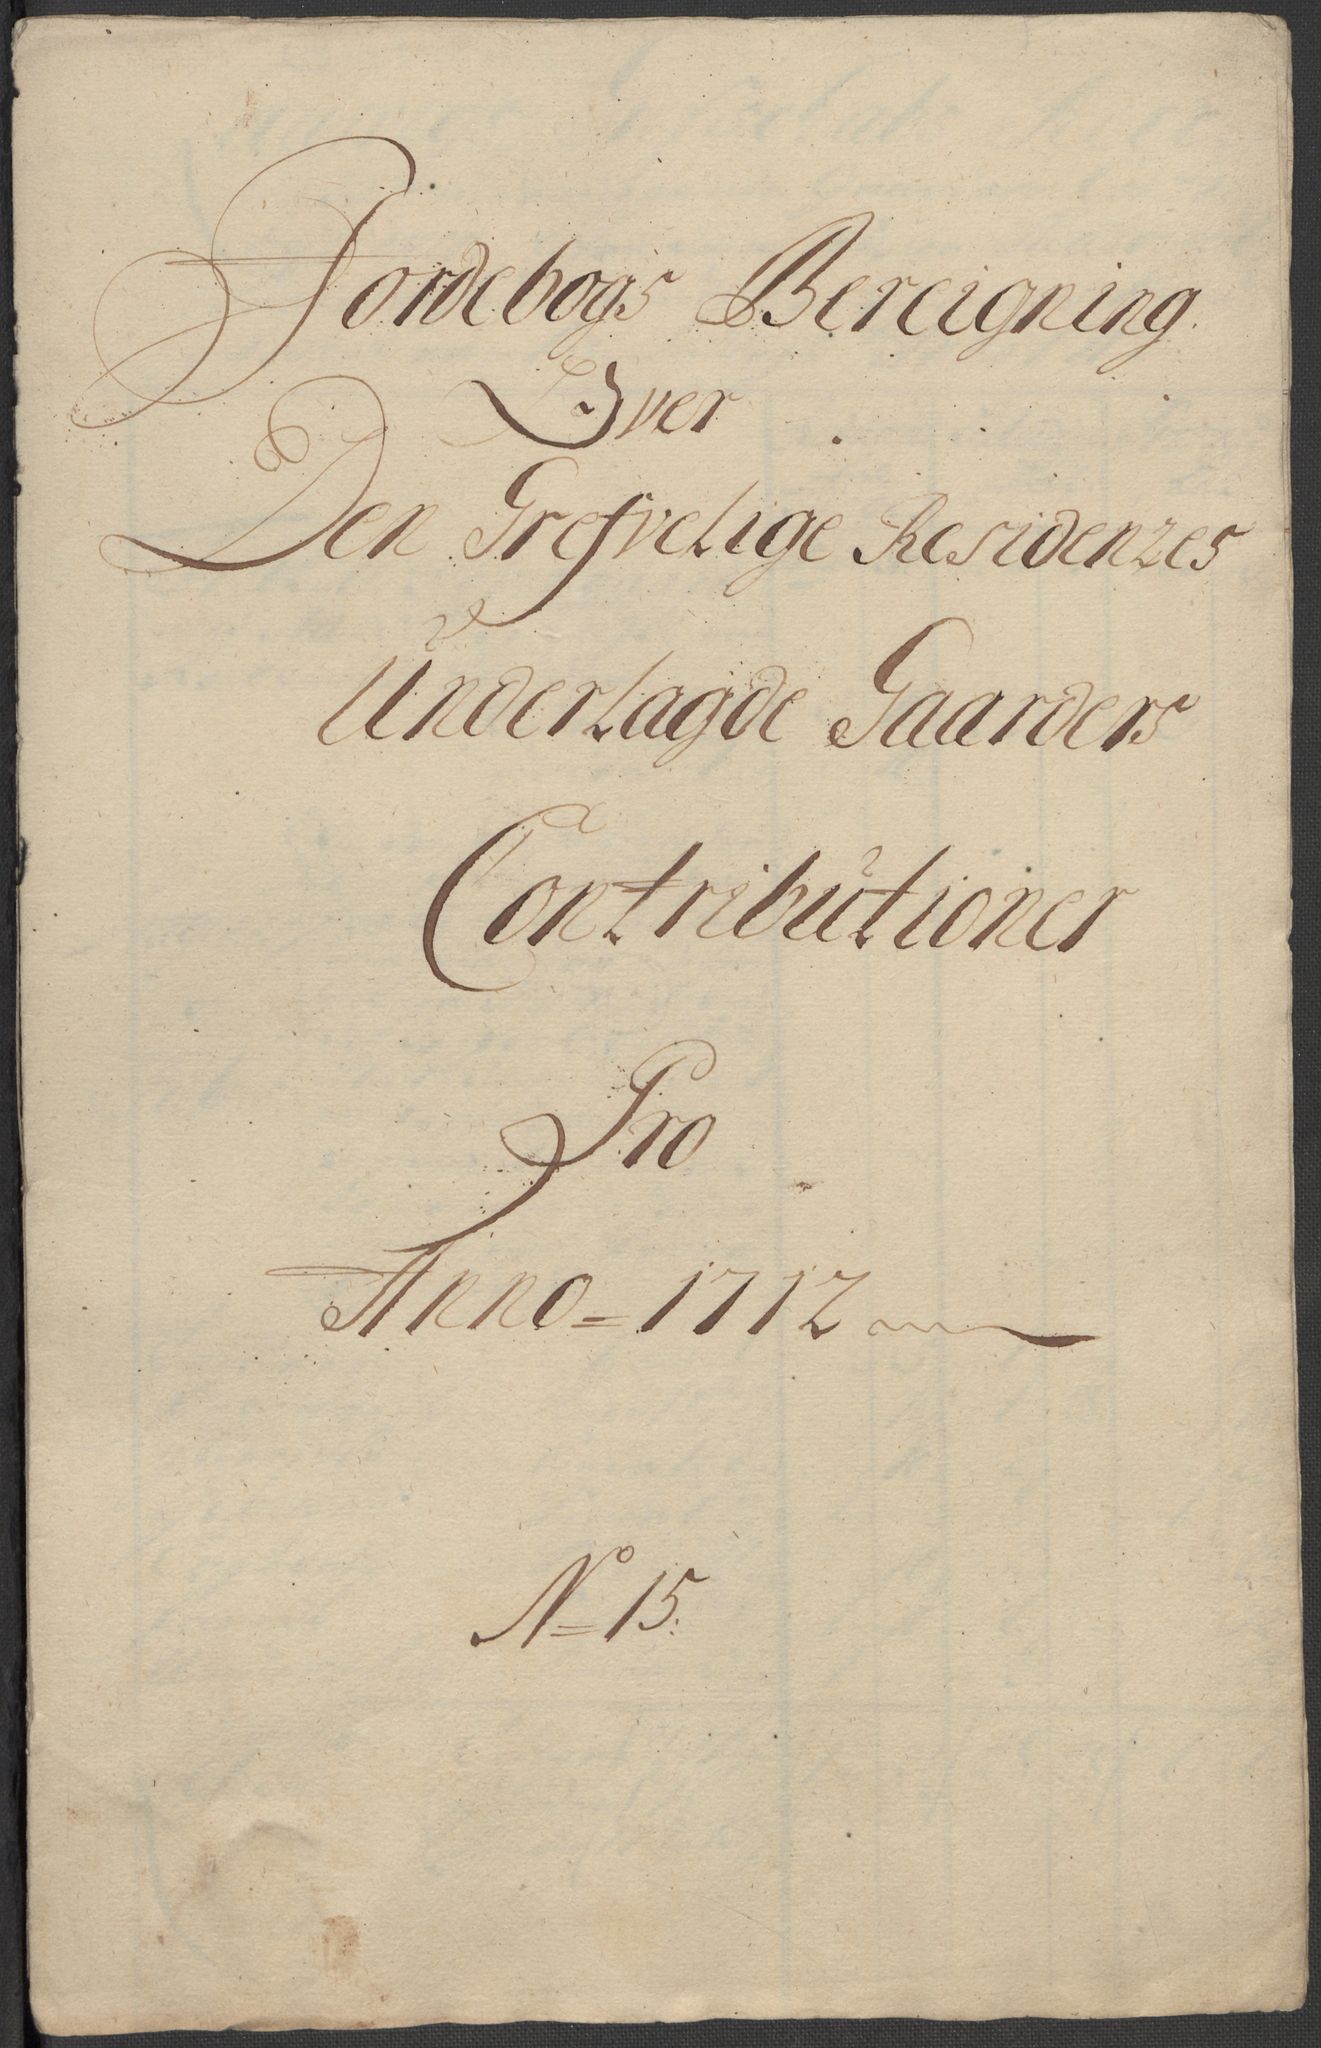 Jordebogs Bereigning
Over
Den Grefvelige Residenzes
Underlagde Gaarders
Contributioner
Pro
Anno = 1712
No 15.